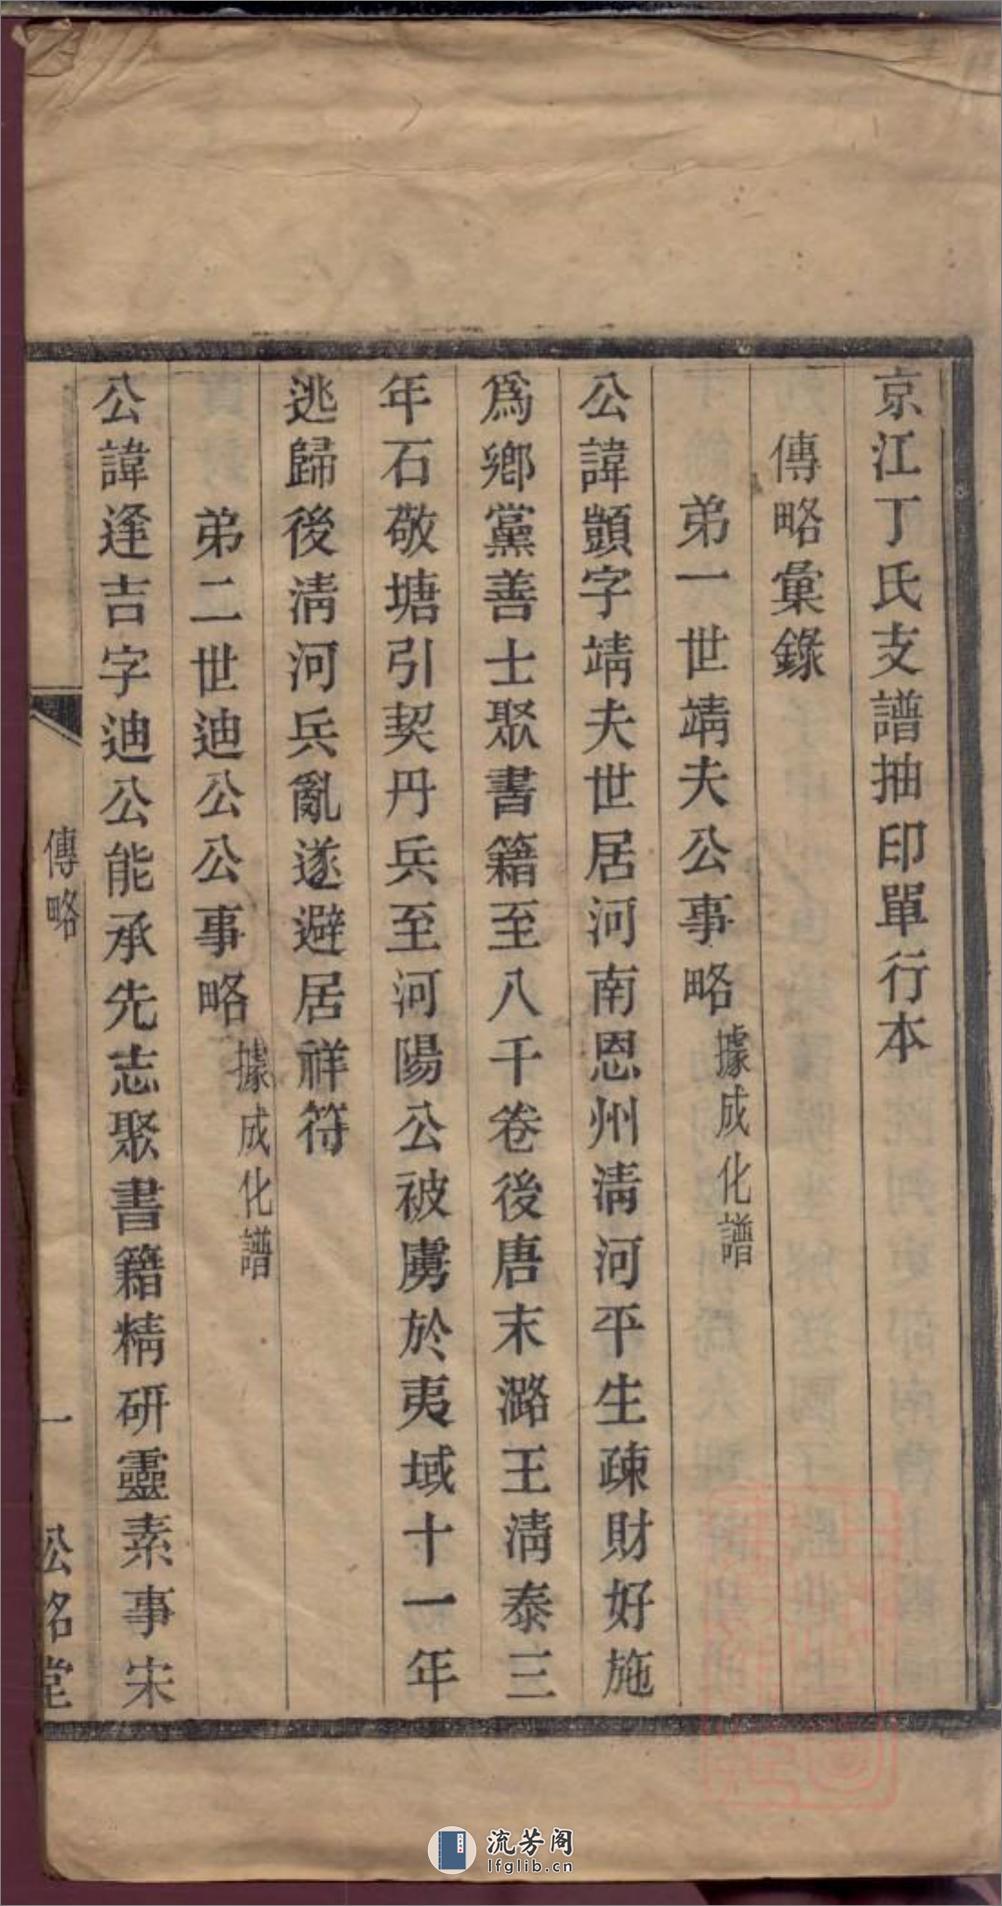 京江丁氏支譜抽印單行本
傳略彙錄
弟一世靖夫公事略 據成化譜
公諱顗字靖夫世居河南恩州清河平生疎財好施
爲鄉黨善士聚書籍至八千卷後唐末潞王清泰三
年石敬塘引契丹兵至河陽公被虜於夷域十一年
逃歸後清河兵亂遂避居祥符
弟二世迪公公事略 據成化譜
公諱逢吉字迪公能承先志聚書籍精研靈素事宋
傳略
一
松銘堂
流芳阁
lfglib.cn